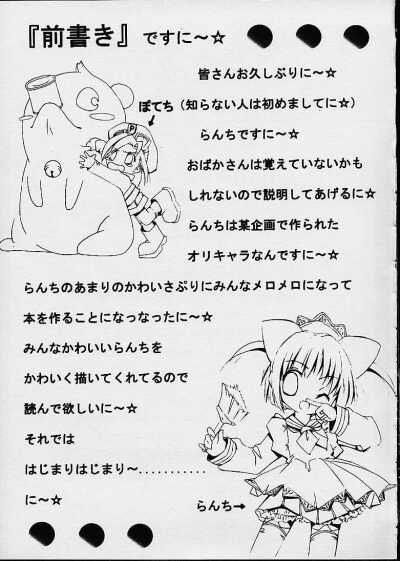 『前書き』ですに～☆
皆さんお久しぶりに～☆
ぽてち
(知らない人は初めましてに☆)
らんちですに～☆
おばかさんは覚えていないかも
しれないので説明してあげるに☆
らんちは某企画で作られた
オリキャラなんですに～☆
らんちのあまりのかわいさぶりにみんなメロメロになって
本を作ることになっなったに～☆
みんなかわいいらんちを
かわいく描いてくれてるので
読んで欲しいに～☆
それでは
はじまりはじまり～...........
に～☆
らんち→